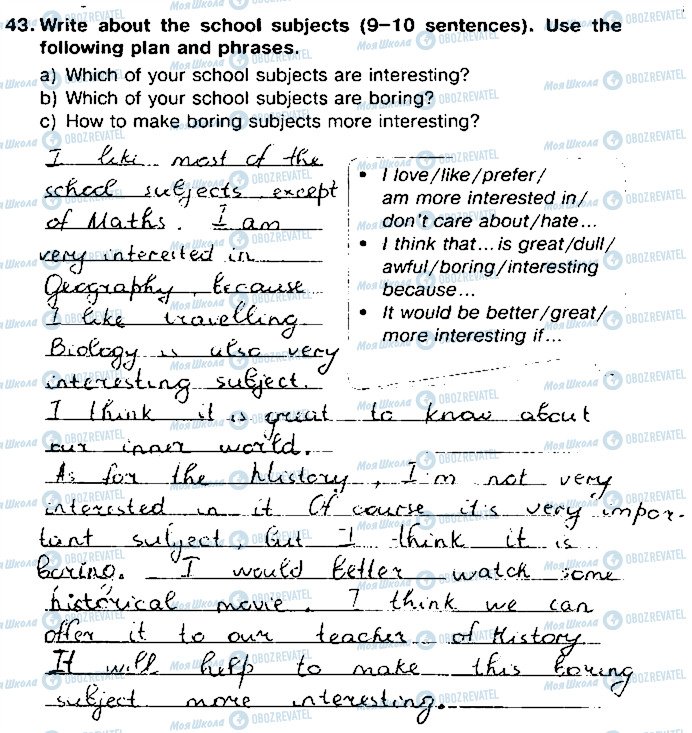 43. Write about the school subjects (9–10 sentences). Use the
following plan and phrases.
a) Which of your school subjects are interesting?
b) Which of your school subjects are boring?
c) How to make boring subjects more interesting?
I like most of the
school subjects except
of Maths. I am
very interested in
Geography, because
I like travelling
Biology is also very
interesting subject.
• I love/like/prefer/
am more interested in/
don't care about/hate...
• I think that...is great/dull/
awful/boring/interesting
because...
• It would be better/great/
more interesting if...
I think it is great to know about
our inner world.
As for the History, I'm not very
interested in it Of course it's very impor-
tant subject, but I think it is
boring. I would better watch some
historical movie. I think we can
offer it to our teacher of History
It will help to make this boring
subject more interesting.
Моя Школа OBOZREVATEL